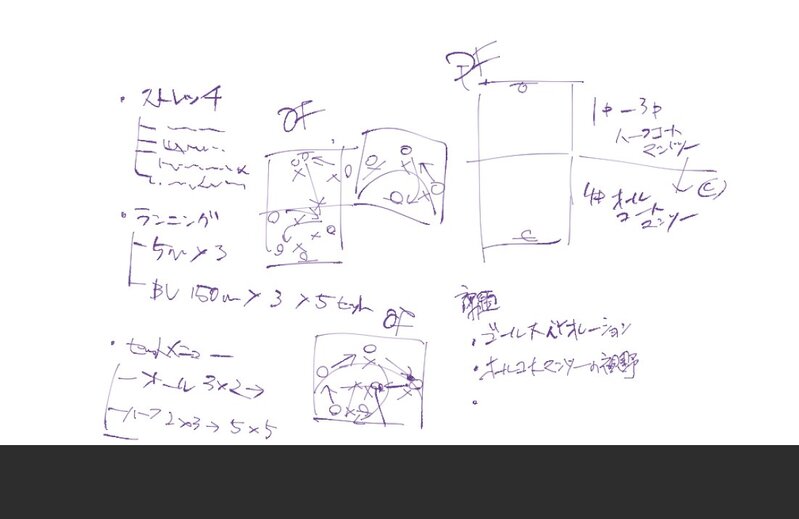 ・ストレッチ
・ランニング
5m×3
BU 150m×3×5セット
・セットメニュー
オール 3×2→
ハーフ 2×3→5×5
OF
OF
DF
1P-3P
ハーフコート
マンツー
4P オール
コート
マンツー
課題
・ゴール下バイオレーション
・オールコートマンツーの視野
・